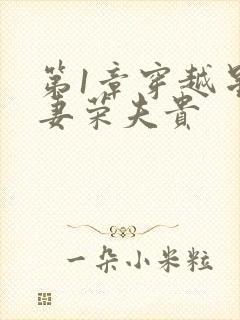 第1章穿越星
妻荣夫贵
一朵小米粒